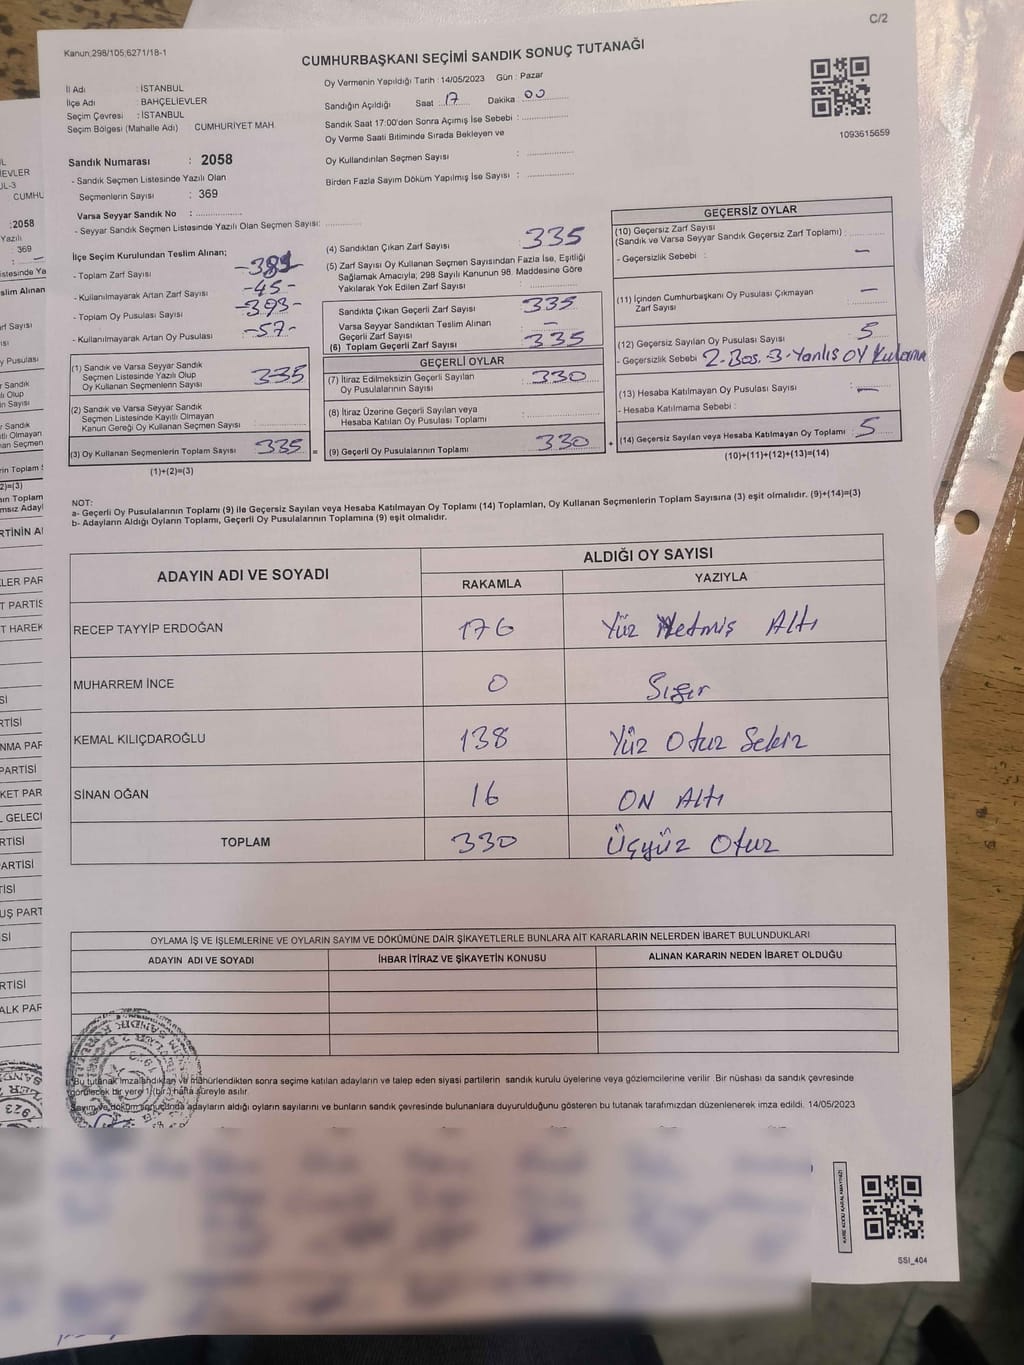 C/2
Kanun;298/105;6271/18-1
CUMHURBAŞKANI SEÇİMİ SANDIK SONUÇ TUTANAĞI
İl Adı : İSTANBUL
İlçe Adı : BAHÇELİEVLER
Seçim Çevresi : İSTANBUL
Seçim Bölgesi (Mahalle Adı) CUMHURİYET MAH.
Sandık Numarası : 2058
- Sandık Seçmen Listesinde Yazılı Olan
Seçmenlerin Sayısı : 369
Varsa Seyyar Sandık No :
- Seyyar Sandık Seçmen Listesinde Yazılı Olan Seçmen Sayısı:
Oy Vermenin Yapıldığı Tarih : 14/05/2023 Gün : Pazar
Sandığın Açıldığı Saat : 17 Dakika : 00
Sandık Saat 17:00'den Sonra Açımış İse Sebebi :
Oy Verme Saati Bitiminde Sırada Bekleyen ve
Oy Kullandırılan Seçmen Sayısı :
Birden Fazla Sayım Döküm Yapılmış İse Sayısı :
1093615659
İlçe Seçim Kurulundan Teslim Alınan;
- Toplam Zarf Sayısı
- Kullanılmayarak Artan Zarf Sayısı -45-
- Toplam Oy Pusulası Sayısı -393-
- Kullanılmayarak Artan Oy Pusulası -57-
(1) Sandık ve Varsa Seyyar Sandık
Seçmen Listesinde Yazılı Olup
Oy Kullanan Seçmenlerın Sayısı 335
(2) Sandık ve Varsa Seyyar Sandık
Seçmen Listesinde Kayıtlı Olmayan
Kanun Gereği Oy Kullanan Seçmen Sayısı
(3) Oy Kullanan Seçmenlerin Toplam Sayısı 335 =
(1)+(2)=(3)
(4) Sandıktan Çıkan Zarf Sayısı 335
(5) Zarf Sayısı Oy Kullanan Seçmen Sayısından Fazla İse, Eşitliği
Sağlamak Amacıyla; 298 Sayılı Kanunun 98. Maddesine Göre
Yakılarak Yok Edilen Zarf Sayısı :
Sandıkta Çıkan Geçerli Zarf Sayısı 335
Varsa Seyyar Sandıktan Teslim Alınan
Geçerli Zarf Sayısı : —
(6) Toplam Geçerli Zarf Sayısı 335
GEÇERLİ OYLAR
(7) İtiraz Edilmeksizin Geçerli Sayılan
Oy Pusulalarının Sayısı 330
(8) İtiraz Üzerine Geçerli Sayılan veya
Hesaba Katılan Oy Pusulası Toplamı
(9) Geçerli Oy Pusulalarının Toplamı 330 +
GEÇERSİZ OYLAR
(10) Geçersiz Zarf Sayısı
(Sandık ve Varsa Seyyar Sandık Geçersiz Zarf Toplamı) :
- Geçersizlik Sebebi : —
(11) İçinden Cumhurbaşkanı Oy Pusulası Çıkmayan
Zarf Sayısı : —
(12) Geçersiz Sayılan Oy Pusulası Sayısı 5
- Geçersizlik Sebebi 2-Boş. 3-Yanlış OY Kullanma
(13) Hesaba Katılmayan Oy Pusulası Sayısı : —
- Hesaba Katılmama Sebebi :
(14) Geçersiz Sayılan veya Hesaba Katılmayan Oy Toplamı : 5
(10)+(11)+(12)+(13)=(14)
NOT:
a- Geçerli Oy Pusulalarının Toplamı (9) ile Geçersiz Sayılan veya Hesaba Katılmayan Oy Toplamı (14) Toplamları, Oy Kullanan Seçmenlerin Toplam Sayısına (3) eşit olmalıdır. (9)+(14)=(3)
b- Adayların Aldığı Oyların Toplamı, Geçerli Oy Pusulalarının Toplamına (9) eşit olmalıdır.
ADAYIN ADI VE SOYADI
ALDIĞI OY SAYISI
RAKAMLA YAZIYLA
RECEP TAYYİP ERDOĞAN 176 Yüz Yetmiş Altı
MUHARREM İNCE 0 Sıfır
KEMAL KILIÇDAROĞLU 138 Yüz Otuz Sekiz
SİNAN OĞAN 16 ON Altı
TOPLAM 330 Üçyüz Otuz
OYLAMA İŞ VE İŞLEMLERİNE VE OYLARIN SAYIM VE DÖKÜMÜNE DAİR ŞİKAYETLERLE BUNLARA AİT KARARLARIN NELERDEN İBARET BULUNDUKLARI
ADAYIN ADI VE SOYADI
İHBAR İTİRAZ VE ŞİKAYETİN KONUSU
ALINAN KARARIN NEDEN İBARET OLDUĞU
Bu tutanak imzalandıktan ve mühürlendikten sonra seçime katılan adayların ve talep eden siyasi partilerin sandık kurulu üyelerine veya gözlemcilerine verilir. Bir nüshası da sandık çevresinde
görülecek bir yere 1(bir) hafta süreyle asılır.
Sayım ve döküm sonucunda adayların aldığı oyların sayılarını ve bunların sandık çevresinde bulunanlara duyurulduğunu gösteren bu tutanak tarafımızdan düzenlenerek imza edildi. 14/05/2023
KARE KODU KARALAMAYINIZ!
SSI_404